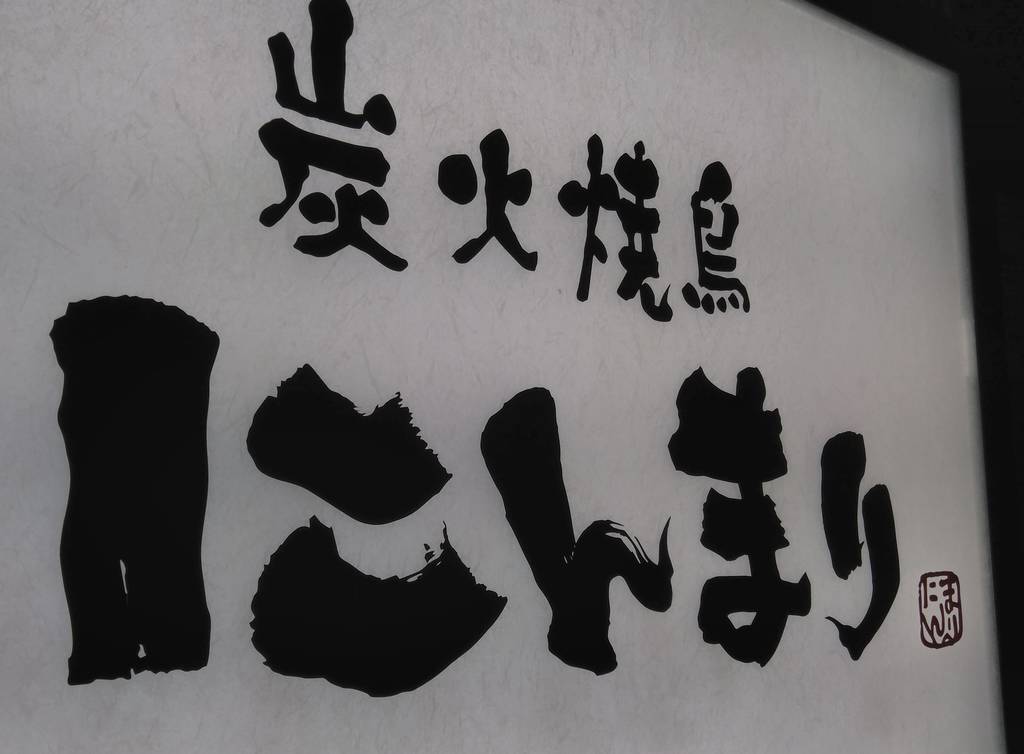 炭火焼鳥
にんまり
にんまり